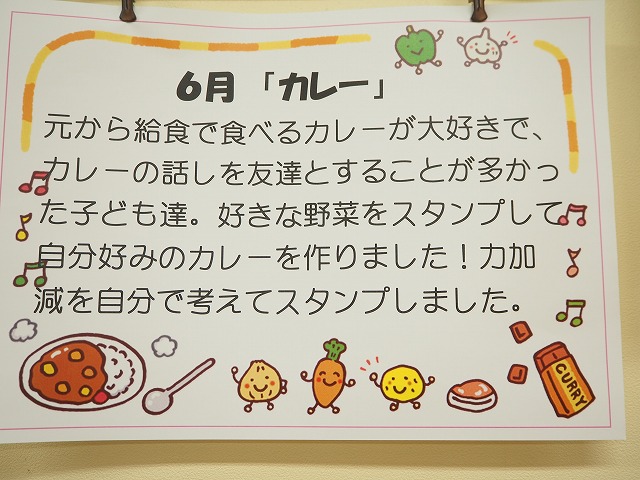 6月「カレー」
元から給食で食べるカレーが大好きで、
カレーの話しを友達とすることが多かっ
た子ども達。好きな野菜をスタンプして
自分好みのカレーを作りました！力加
減を自分で考えてスタンプしました。
CURRY